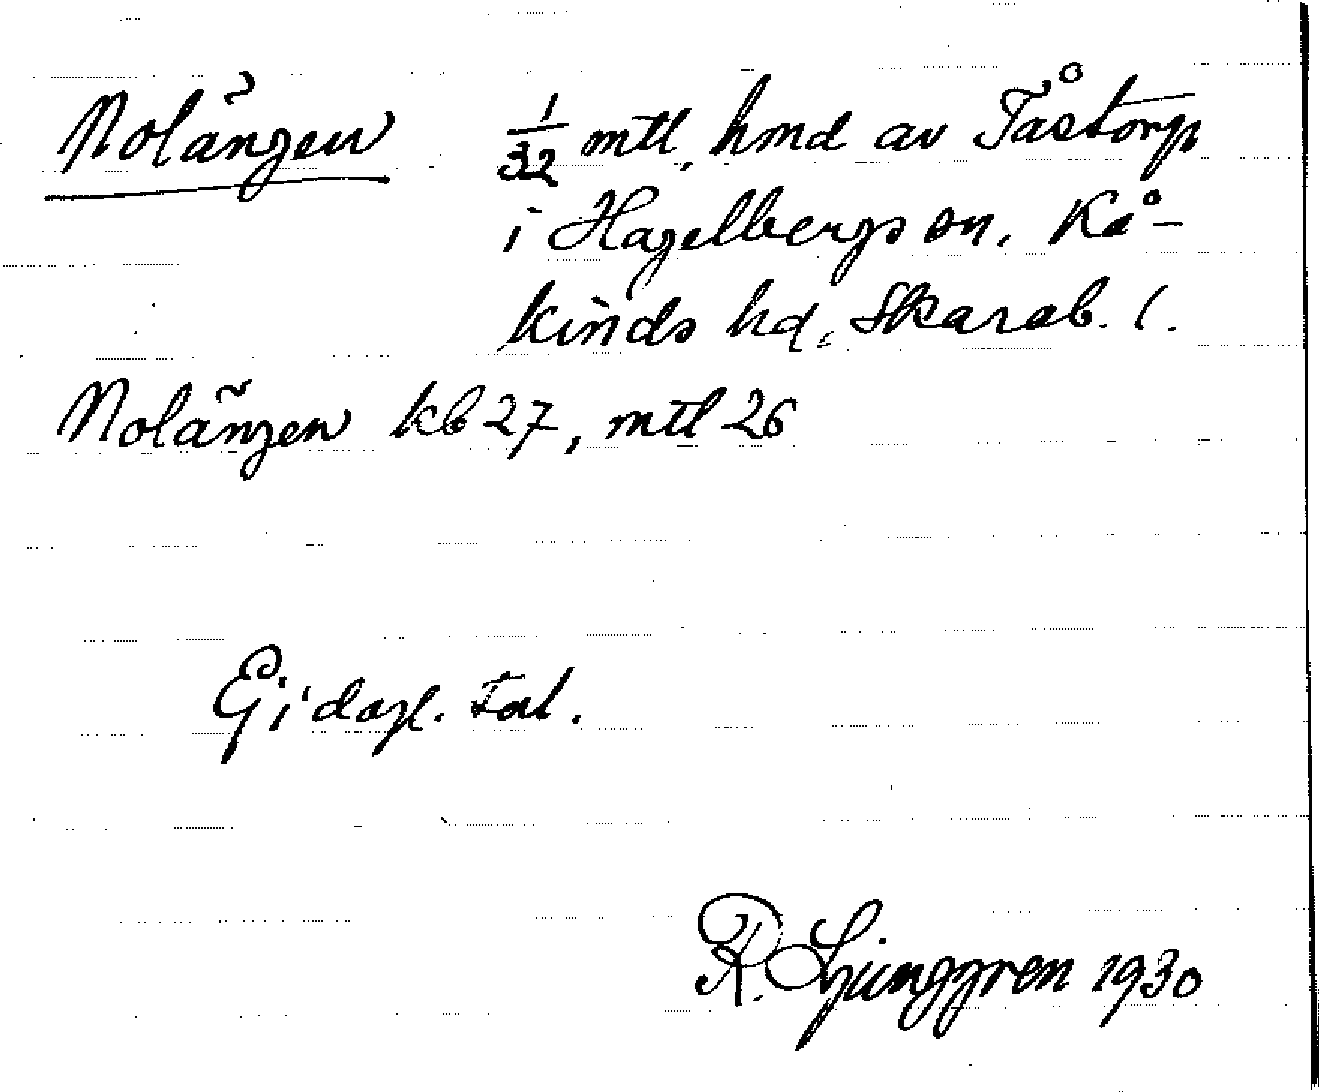 Nolängen 1/32 mtl, hmd av Tåstorp
i Hagelbergs sn, Kå-
kinds hd, Skarab. l.
Nolängen kb 27, mtl 26
Ej i dagl. tal.
R. Ljunggren 1930